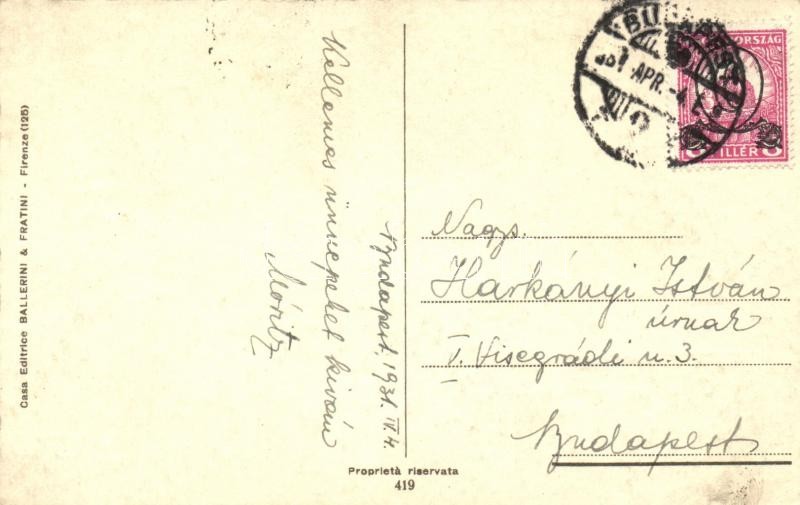 Casa Editrice BALLERINI & FRATINI - Firenze (125)
Kellemes ünnepeket kíván
Móritz
Budapest, 1931. IV. 4.
Proprietà riservata
419
BUDAPEST
APR. -4
ORSZÁG
FILLÉR
Nagys.
Harkányi István
úrnak
V. Visegrádi u. 3.
Budapest